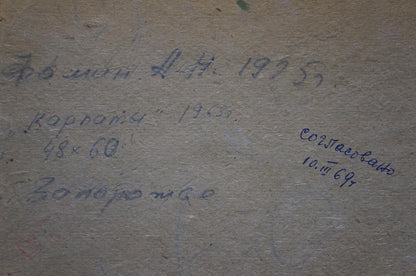 Фомин А.Н. 1925г
„Карпаты" 196
48×60
Запорожье
согласовано
10.III 69г